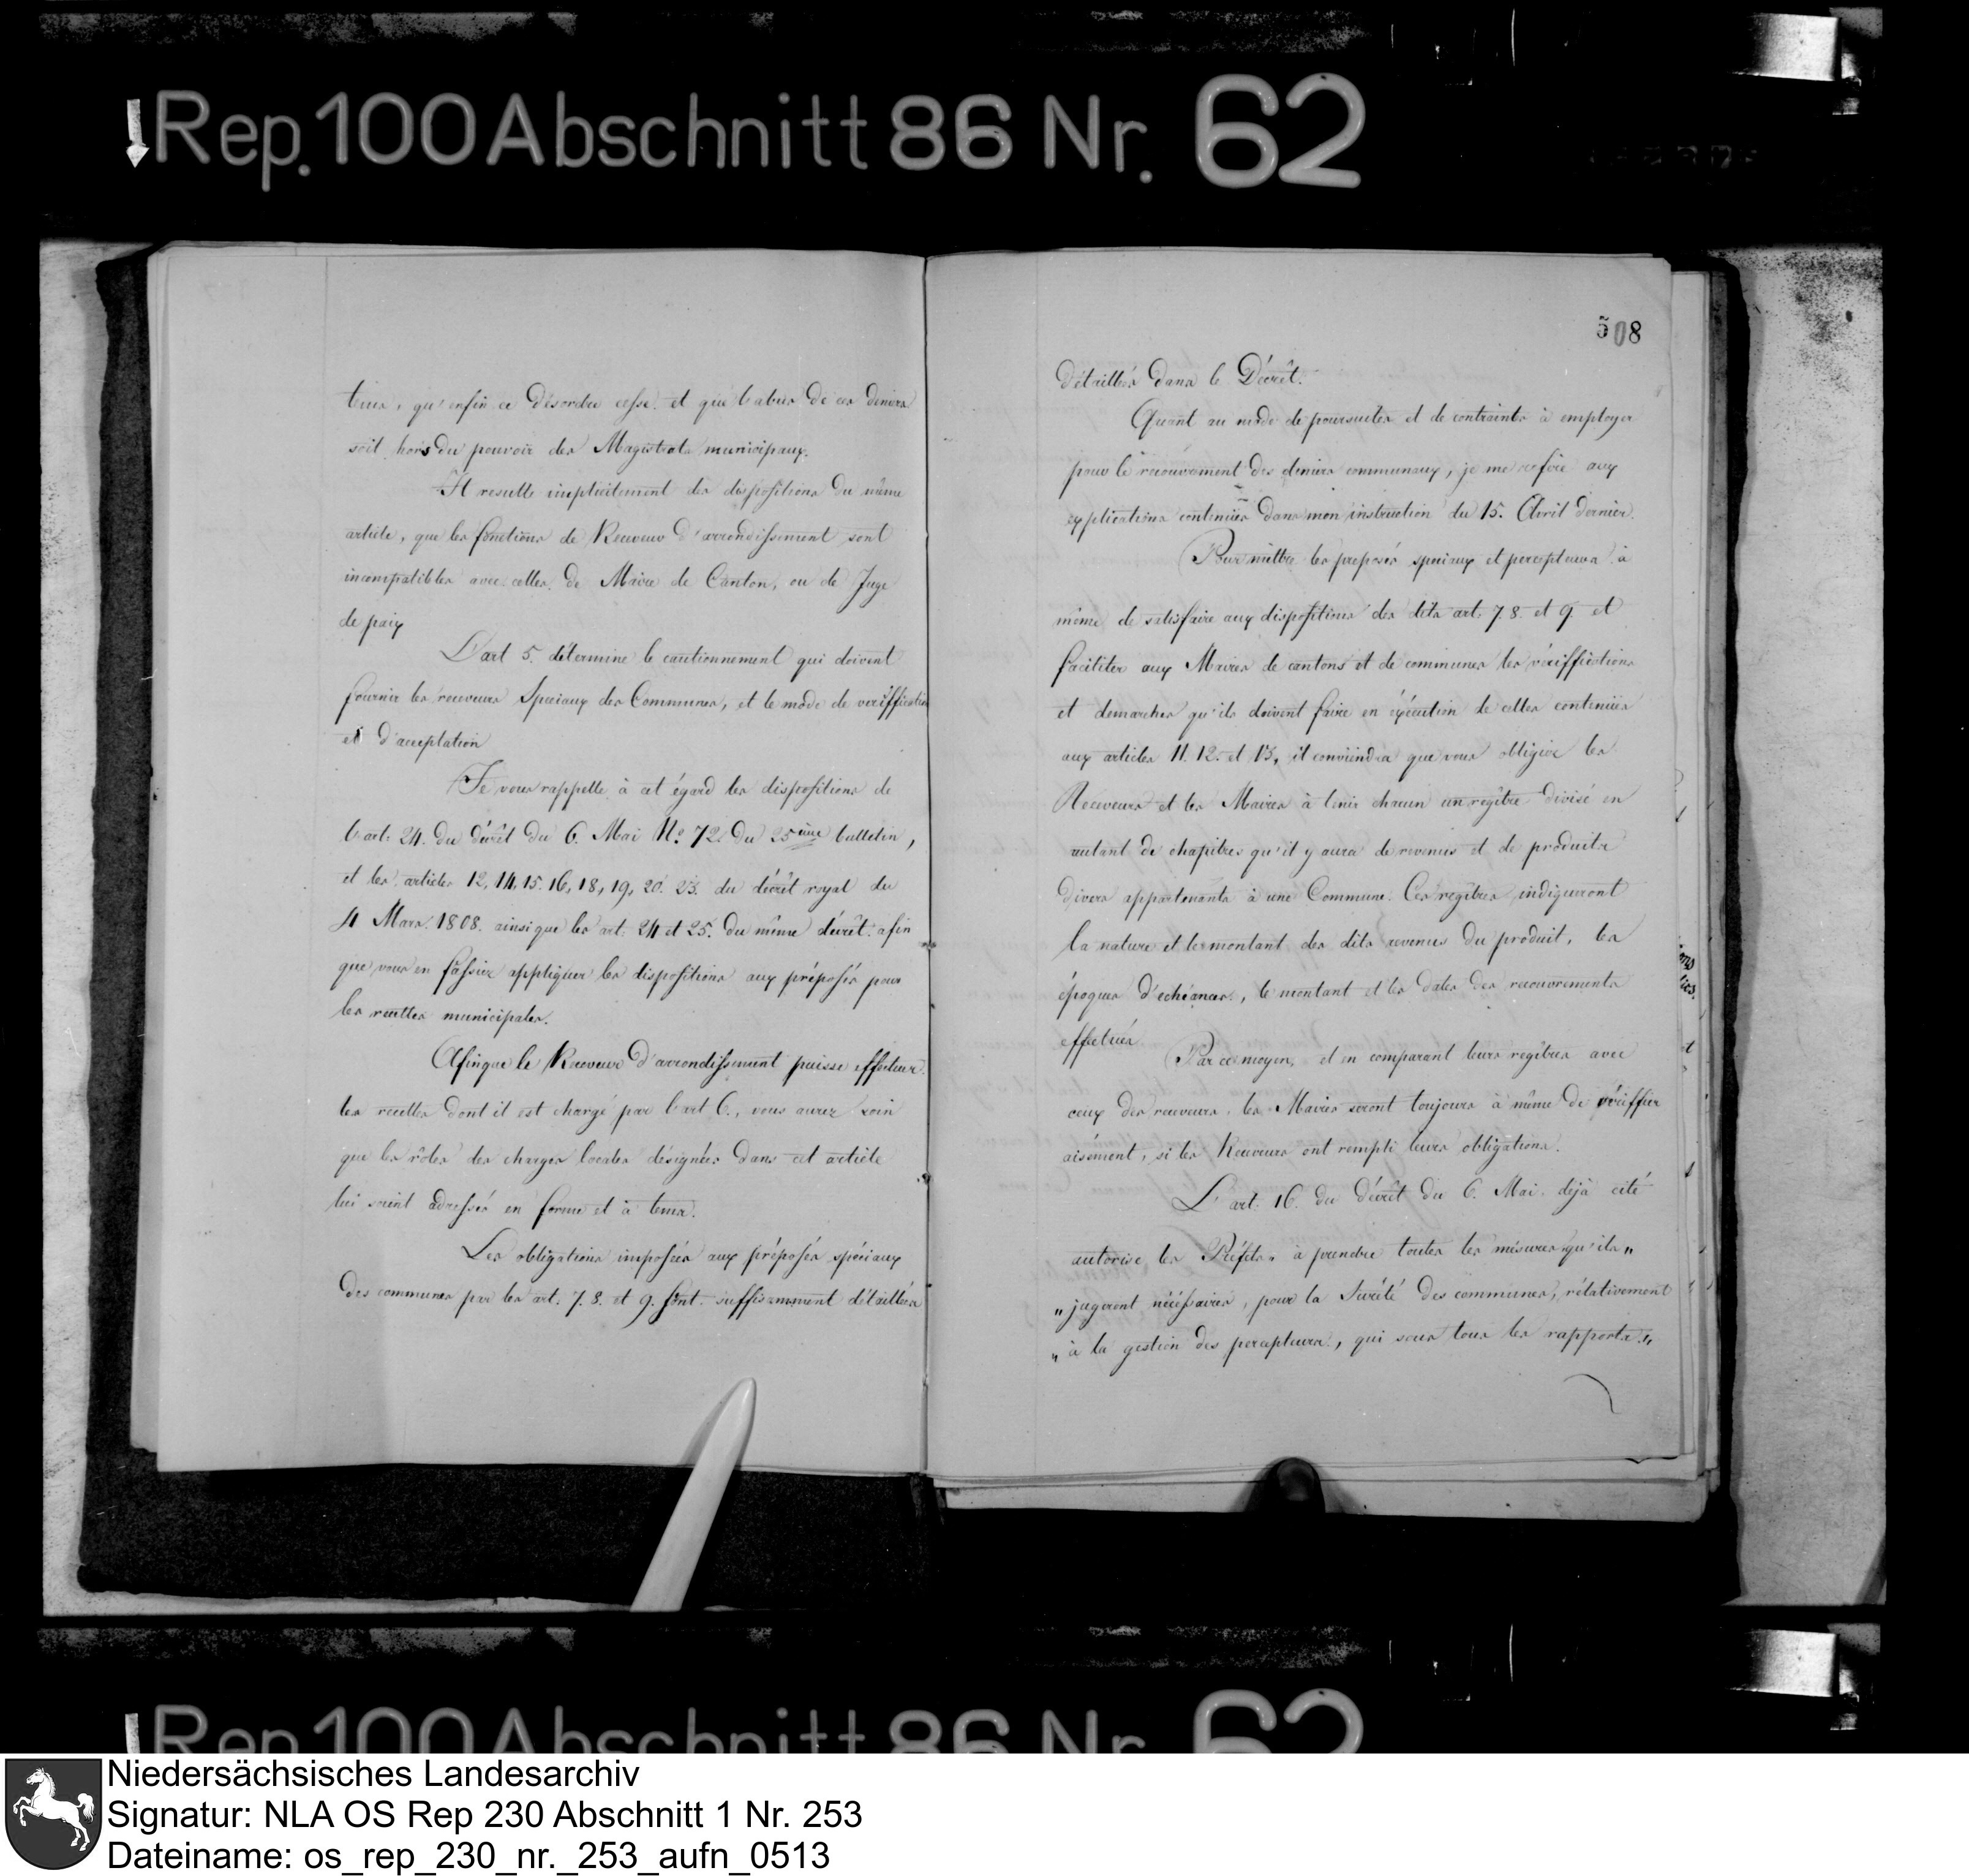 Rep. 100 Abschnitt 86 Nr. 62
teurs, qu'enfin ce désordre cesse et que l'abus de ces deniers
soit hors du pouvoir des Magistrats municipaux.
Il resulte implicitement des dispositions du même
article, que les fonctions de Receveur d'arrondissement sont
incompatibles avec celles de Maire de Canton, ou de Juge
de paix
L'art 5. détermine le cautionnement qui doivent
fournir les receveurs Speciaux des Communes, et le mode de veriffication
et d'acceptation
Je vous rappelle à cet égard les dispositions de
l'art. 24. du décrêt du 6. Mai No. 72. du 25ème bulletin,
et les articles 12, 14, 15. 16, 18, 19, 20. 23. du décrêt royal du
4 Mars 1808. ainsi que les art. 24 et 25. du même décrêt. afin
que vous en fassiez appliquer les dispositions aux préposés pour
les recettes municipales.
Afin que le Receveur d'arrondissement puisse effectuer
les recettes dont il est chargé par l'art 6., vous aurez soin
que les rôles des charges locales désignées dans cet article
lui soient adressés en forme et à tems.
Les obligations imposées aux préposés spéciaux
des communes par les art. 7. 8. et 9. sont suffisamment détaillées
508
détaillés dans le Décrêt.
Quant au mode de poursuites et de contraintes à employer
pour le recouvrement des deniers communaux, je me refère aux
explications contenües dans mon instruction du 15. Avril dernier.
Pour mettre les preposés speciaux et percepteurs à
même de satisfaire aux dispositions des dits art. 7. 8. et 9. et
faciliter aux Maires de cantons et de communes les vériffications
et demarches qu'ils doivent faire en éxécution de celles contenües
aux articles 11. 12. et 13, il conviendra que vous obligiez les
Receveurs et les Maires à tenir chacun un regître divisé en
autant de chapitres qu'il y aura de revenus et de produits
divers appartenants à une Commune. Ces regîtres indiqueront
la nature et le montant des dits revenus du produit, les
époques d'echéances, le montant et les dates des recouvrements
effectués
Par ce moyen, et en comparant leurs regîtres avec
ceux des receveurs, les Maires seront toujours à même de vériffier
aisément, si les Receveurs ont rempli leurs obligations.
L'art. 16. du décrêt du 6. Mai déjà cité
autorise les Préfets „ à prendre toutes les mésures qu'ils „
„ jugeront nécéssaires, pour la Sûreté des communes, rélativement
„ à la gestion des percepteurs, qui sous tous les rapports „
Rep. 100 Abschnitt 86 Nr. 62
Niedersächsisches Landesarchiv
Signatur: NLA OS Rep 230 Abschnitt 1 Nr. 253
Dateiname: os_rep_230_nr._253_aufn_0513